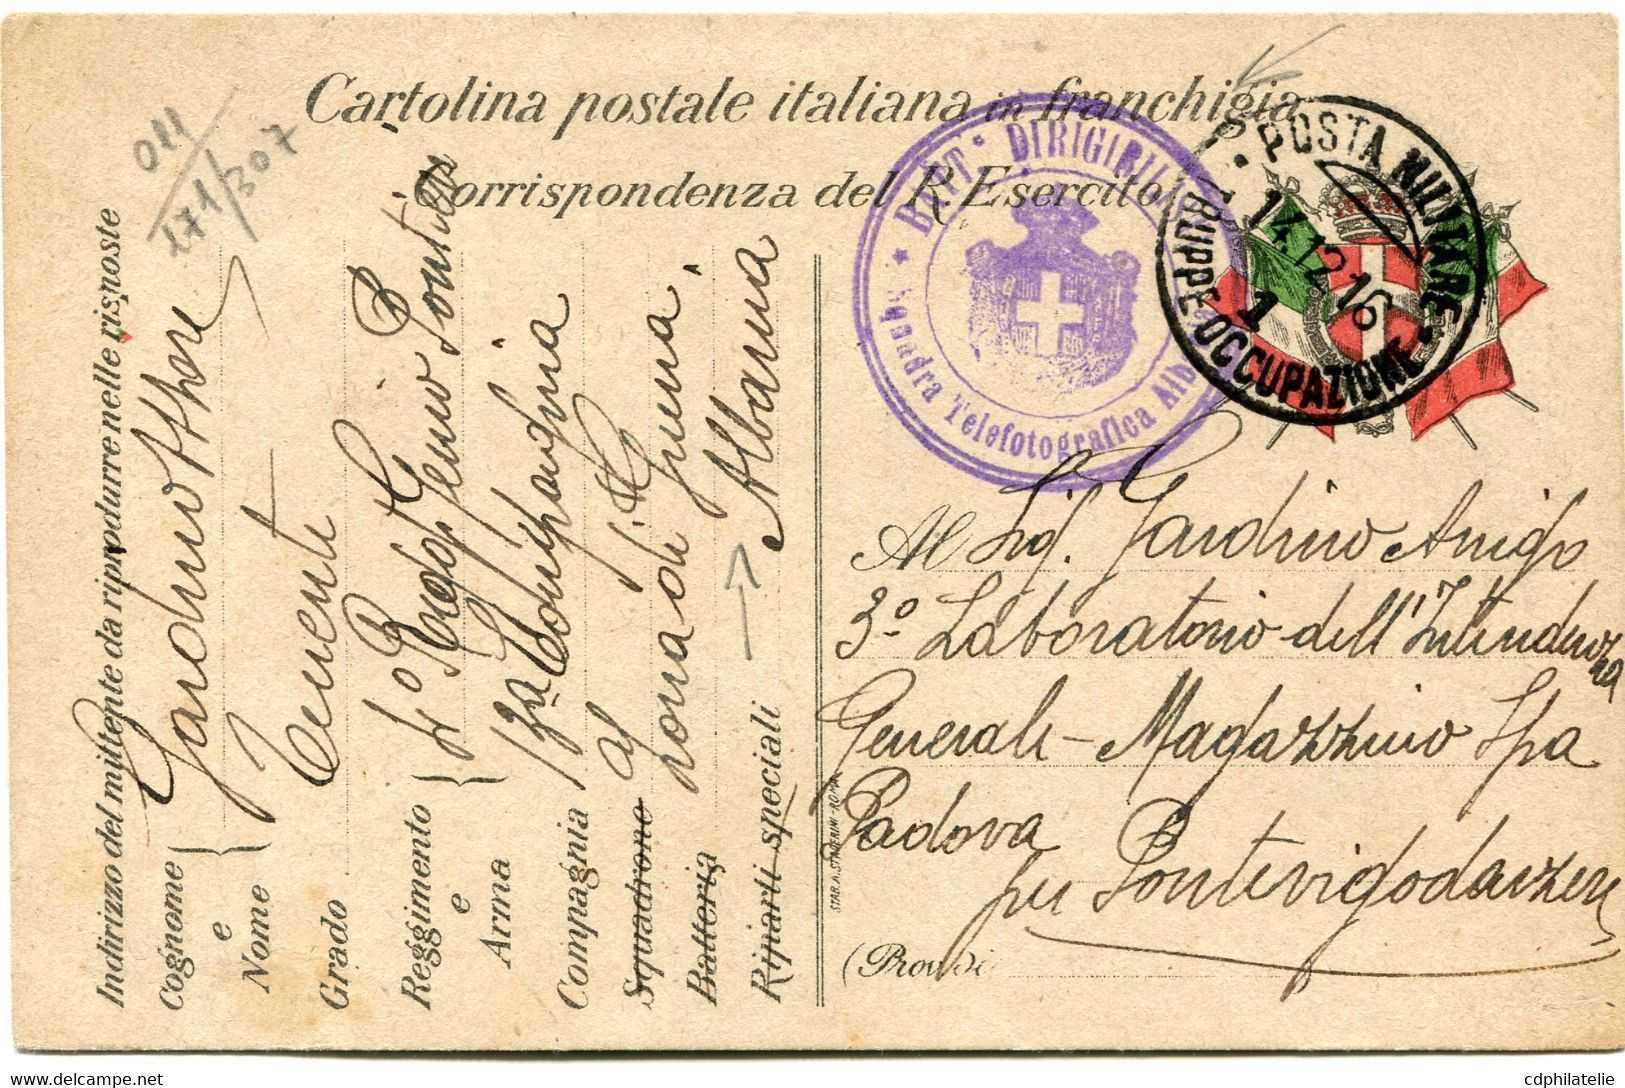 Cartolina postale italiana in franchigia
Corrispondenza del R. Esercito
011
171/307
BATT. DIRIGIBILI
Squadra Telefotografica Alb
POSTA MILITARE
TRUPPE OCCUPAZIONE
14.12.16
1
Indirizzo del mittente da riprodurre nelle risposte
Cognome e Nome Gardino Ettore
Grado Tenente
Reggimento e Arma 4° Regg. Genio Pontieri
Compagnia 13a Compagnia
Squadrone
Batteria Zona di Guerra
Riparti speciali Albania
STAB. A. STADERINI - ROMA
Al Sig. Gardino Arrigo
3° Laboratorio dell'Intendenza
Generale - Magazzino Spa
Padova
per Pontevigodarzere
(Prov. di
cdphilatelie